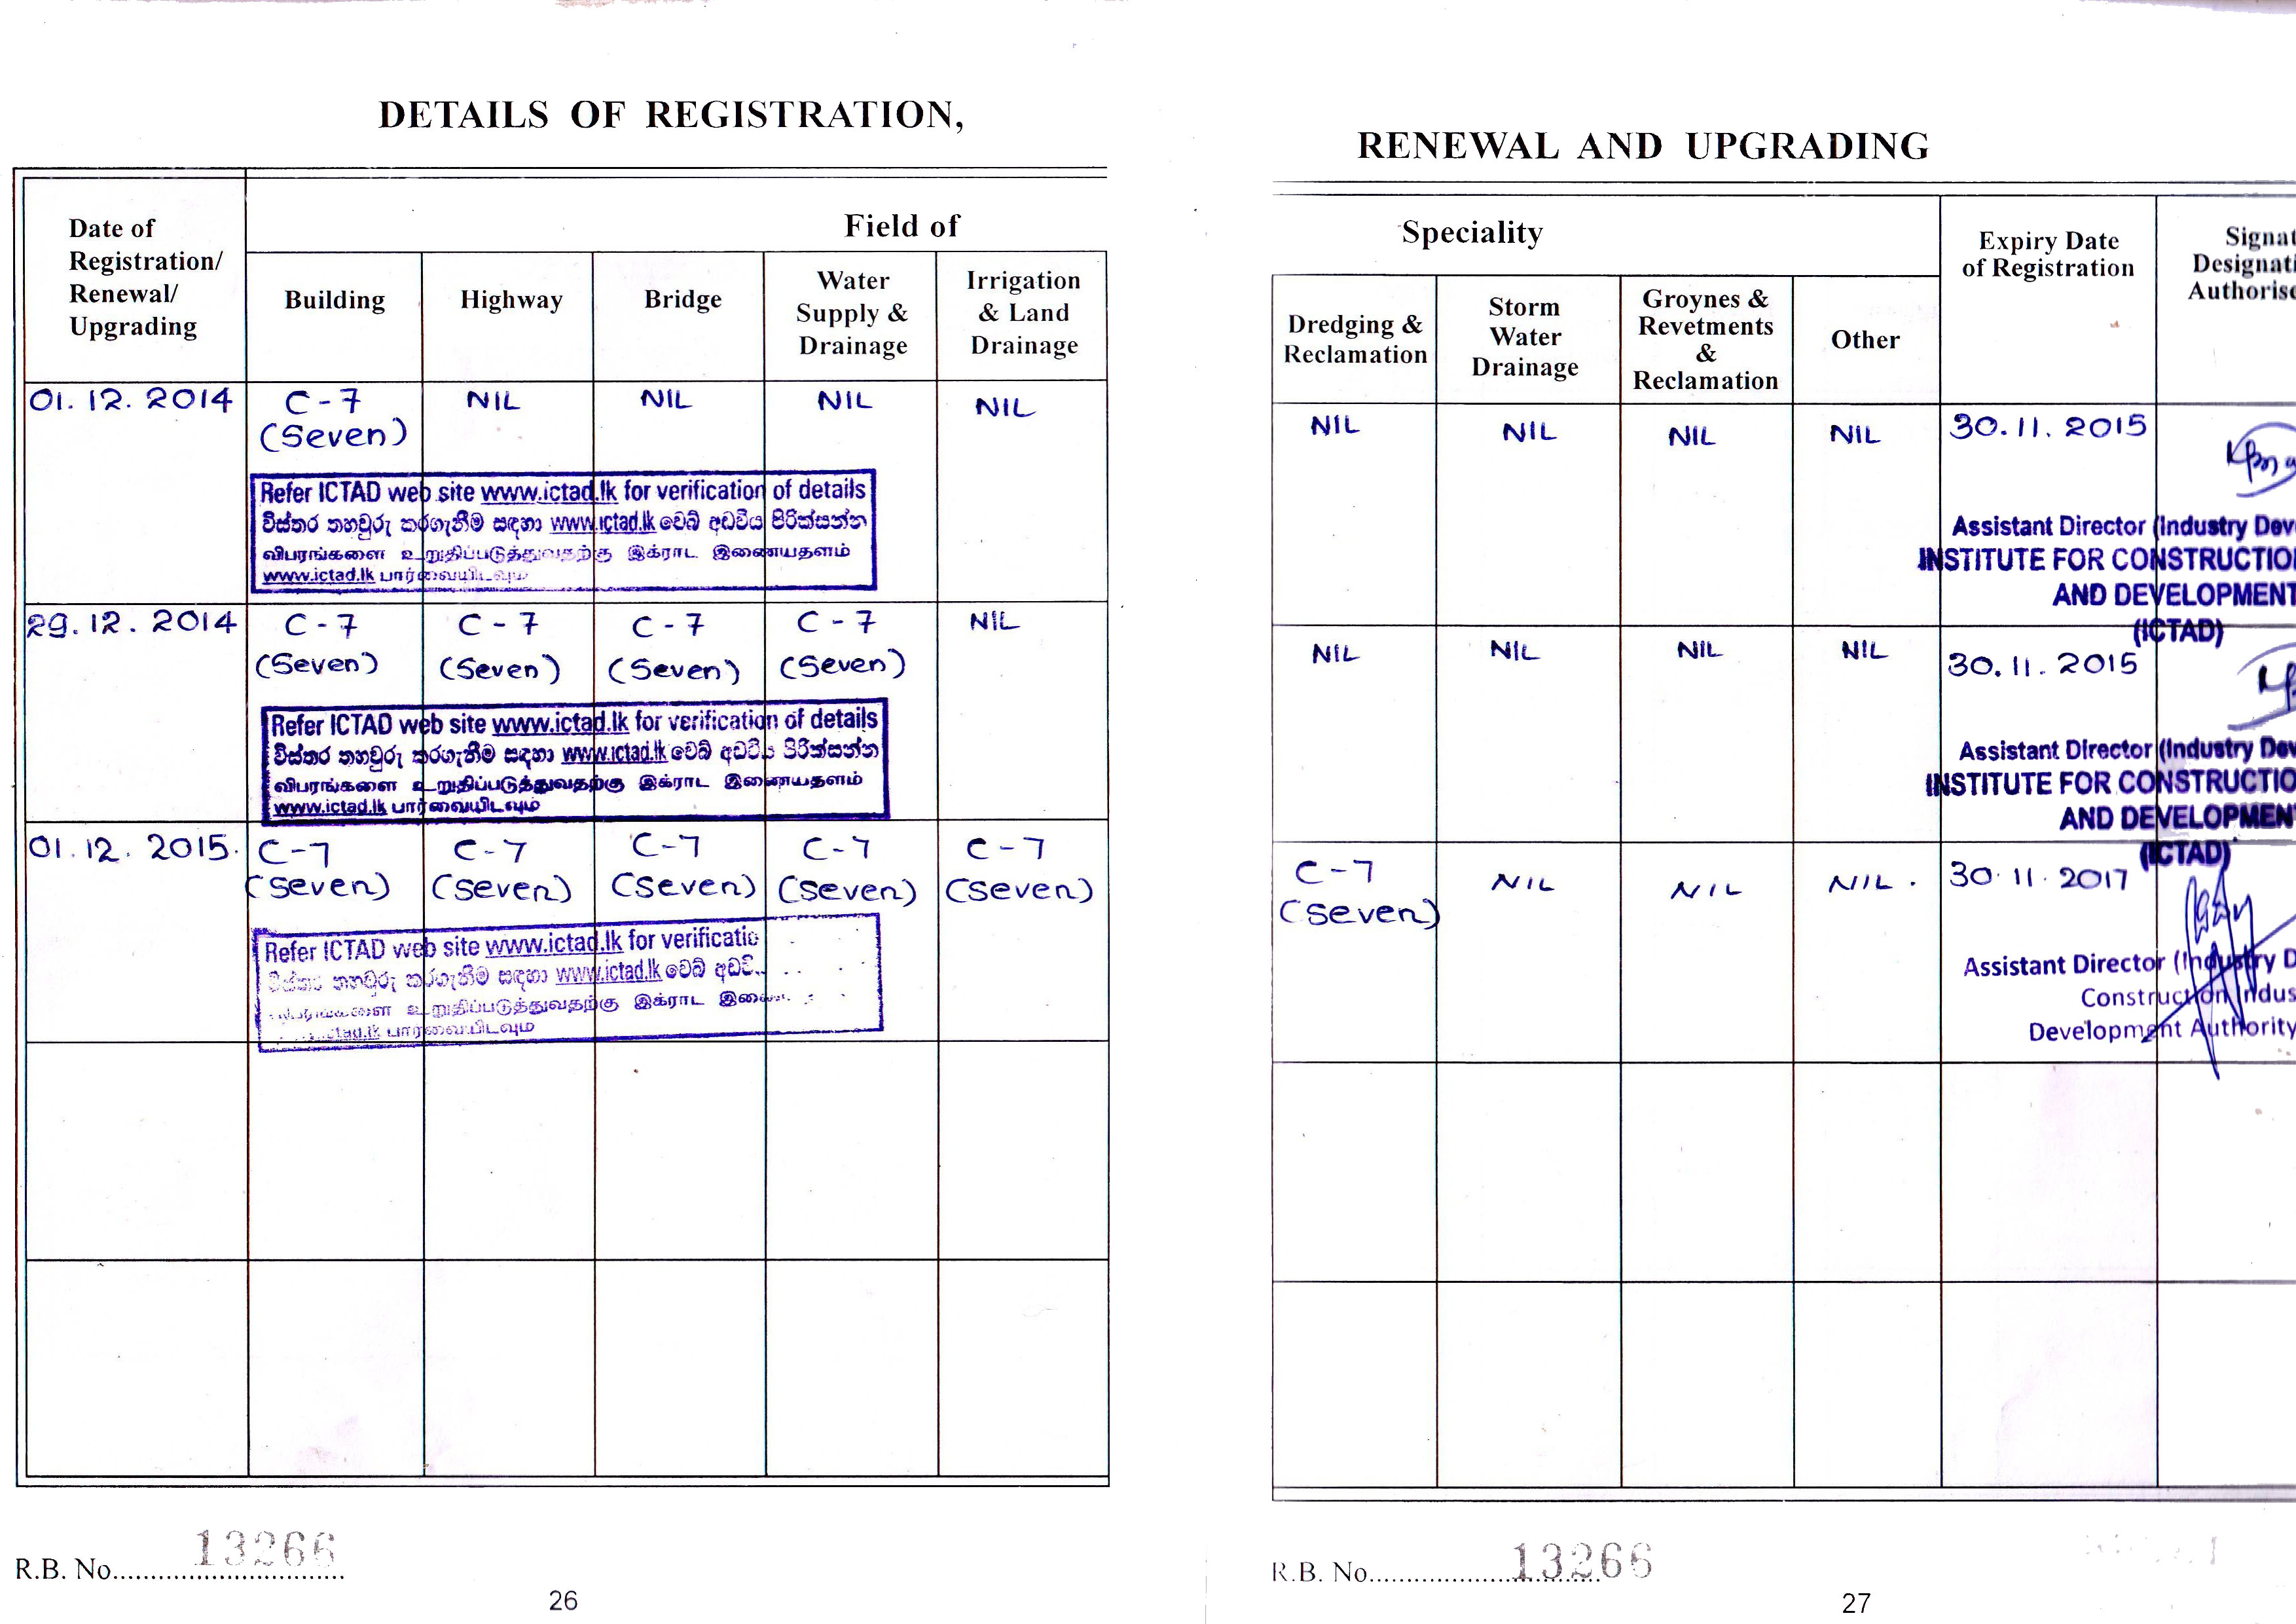 DETAILS OF REGISTRATION,
Date of
Registration/
Renewal/
Upgrading
Field of
Building
Highway
Bridge
Water
Supply &
Drainage
Irrigation
& Land
Drainage
01.12.2014
C-7
(Seven)
NIL
NIL
NIL
NIL
Refer ICTAD web site www.ictad.lk for verification of details
විස්තර තහවුරු කරගැනීම සඳහා www.ictad.lk වෙබ් අඩවිය පිරික්සන්න
விபரங்களை உறுதிப்படுத்துவதற்கு இக்ராட இணையதளம்
www.ictad.lk பார்வையிடவும்
29.12.2014
C-7
(Seven)
C-7
(Seven)
C-7
(Seven)
C-7
(Seven)
NIL
Refer ICTAD web site www.ictad.lk for verification of details
විස්තර තහවුරු කරගැනීම සඳහා www.ictad.lk වෙබ් අඩවිය පිරික්සන්න
விபரங்களை உறுதிப்படுத்துவதற்கு இக்ராட இணையதளம்
www.ictad.lk பார்வையிடவும்
01.12.2015.
C-7
(Seven)
C-7
(Seven)
C-7
(Seven)
C-7
(Seven)
C-7
(Seven)
Refer ICTAD web site www.ictad.lk for verificatio
විස්තර තහවුරු කරගැනීම සඳහා www.ictad.lk වෙබ්
உறுதிப்படுத்துவதற்கு இக்ராட
பார்வையிடவும்
R.B. No. 13266
26
RENEWAL AND UPGRADING
Speciality
Dredging &
Reclamation
Storm
Water
Drainage
Groynes &
Revetments
&
Reclamation
Other
Expiry Date
of Registration
Signat
Designati
Authorise
NIL
NIL
NIL
NIL
30.11.2015
Assistant Director (Industry Dev
INSTITUTE FOR CONSTRUCTIO
AND DEVELOPMENT
(ICTAD)
NIL
NIL
NIL
NIL
30.11.2015
Assistant Director (Industry Dev
INSTITUTE FOR CONSTRUCTIO
AND DEVELOPMEN
(ICTAD)
C-7
(Seven)
NIL
NIL
NIL.
30.11.2017
Assistant Director (Industry D
Construction Indus
Development Authority
R.B. No. 13266
27